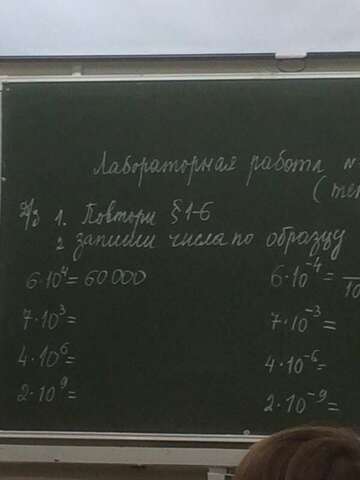 Лабораторная работа
Д/з 1. Повтори § 1-6
2 запиши числа по образцу
6·10⁴=60 000
6·10⁻⁴=
7·10³=
7·10⁻³=
4·10⁶=
4·10⁻⁶=
2·10⁹=
2·10⁻⁹=